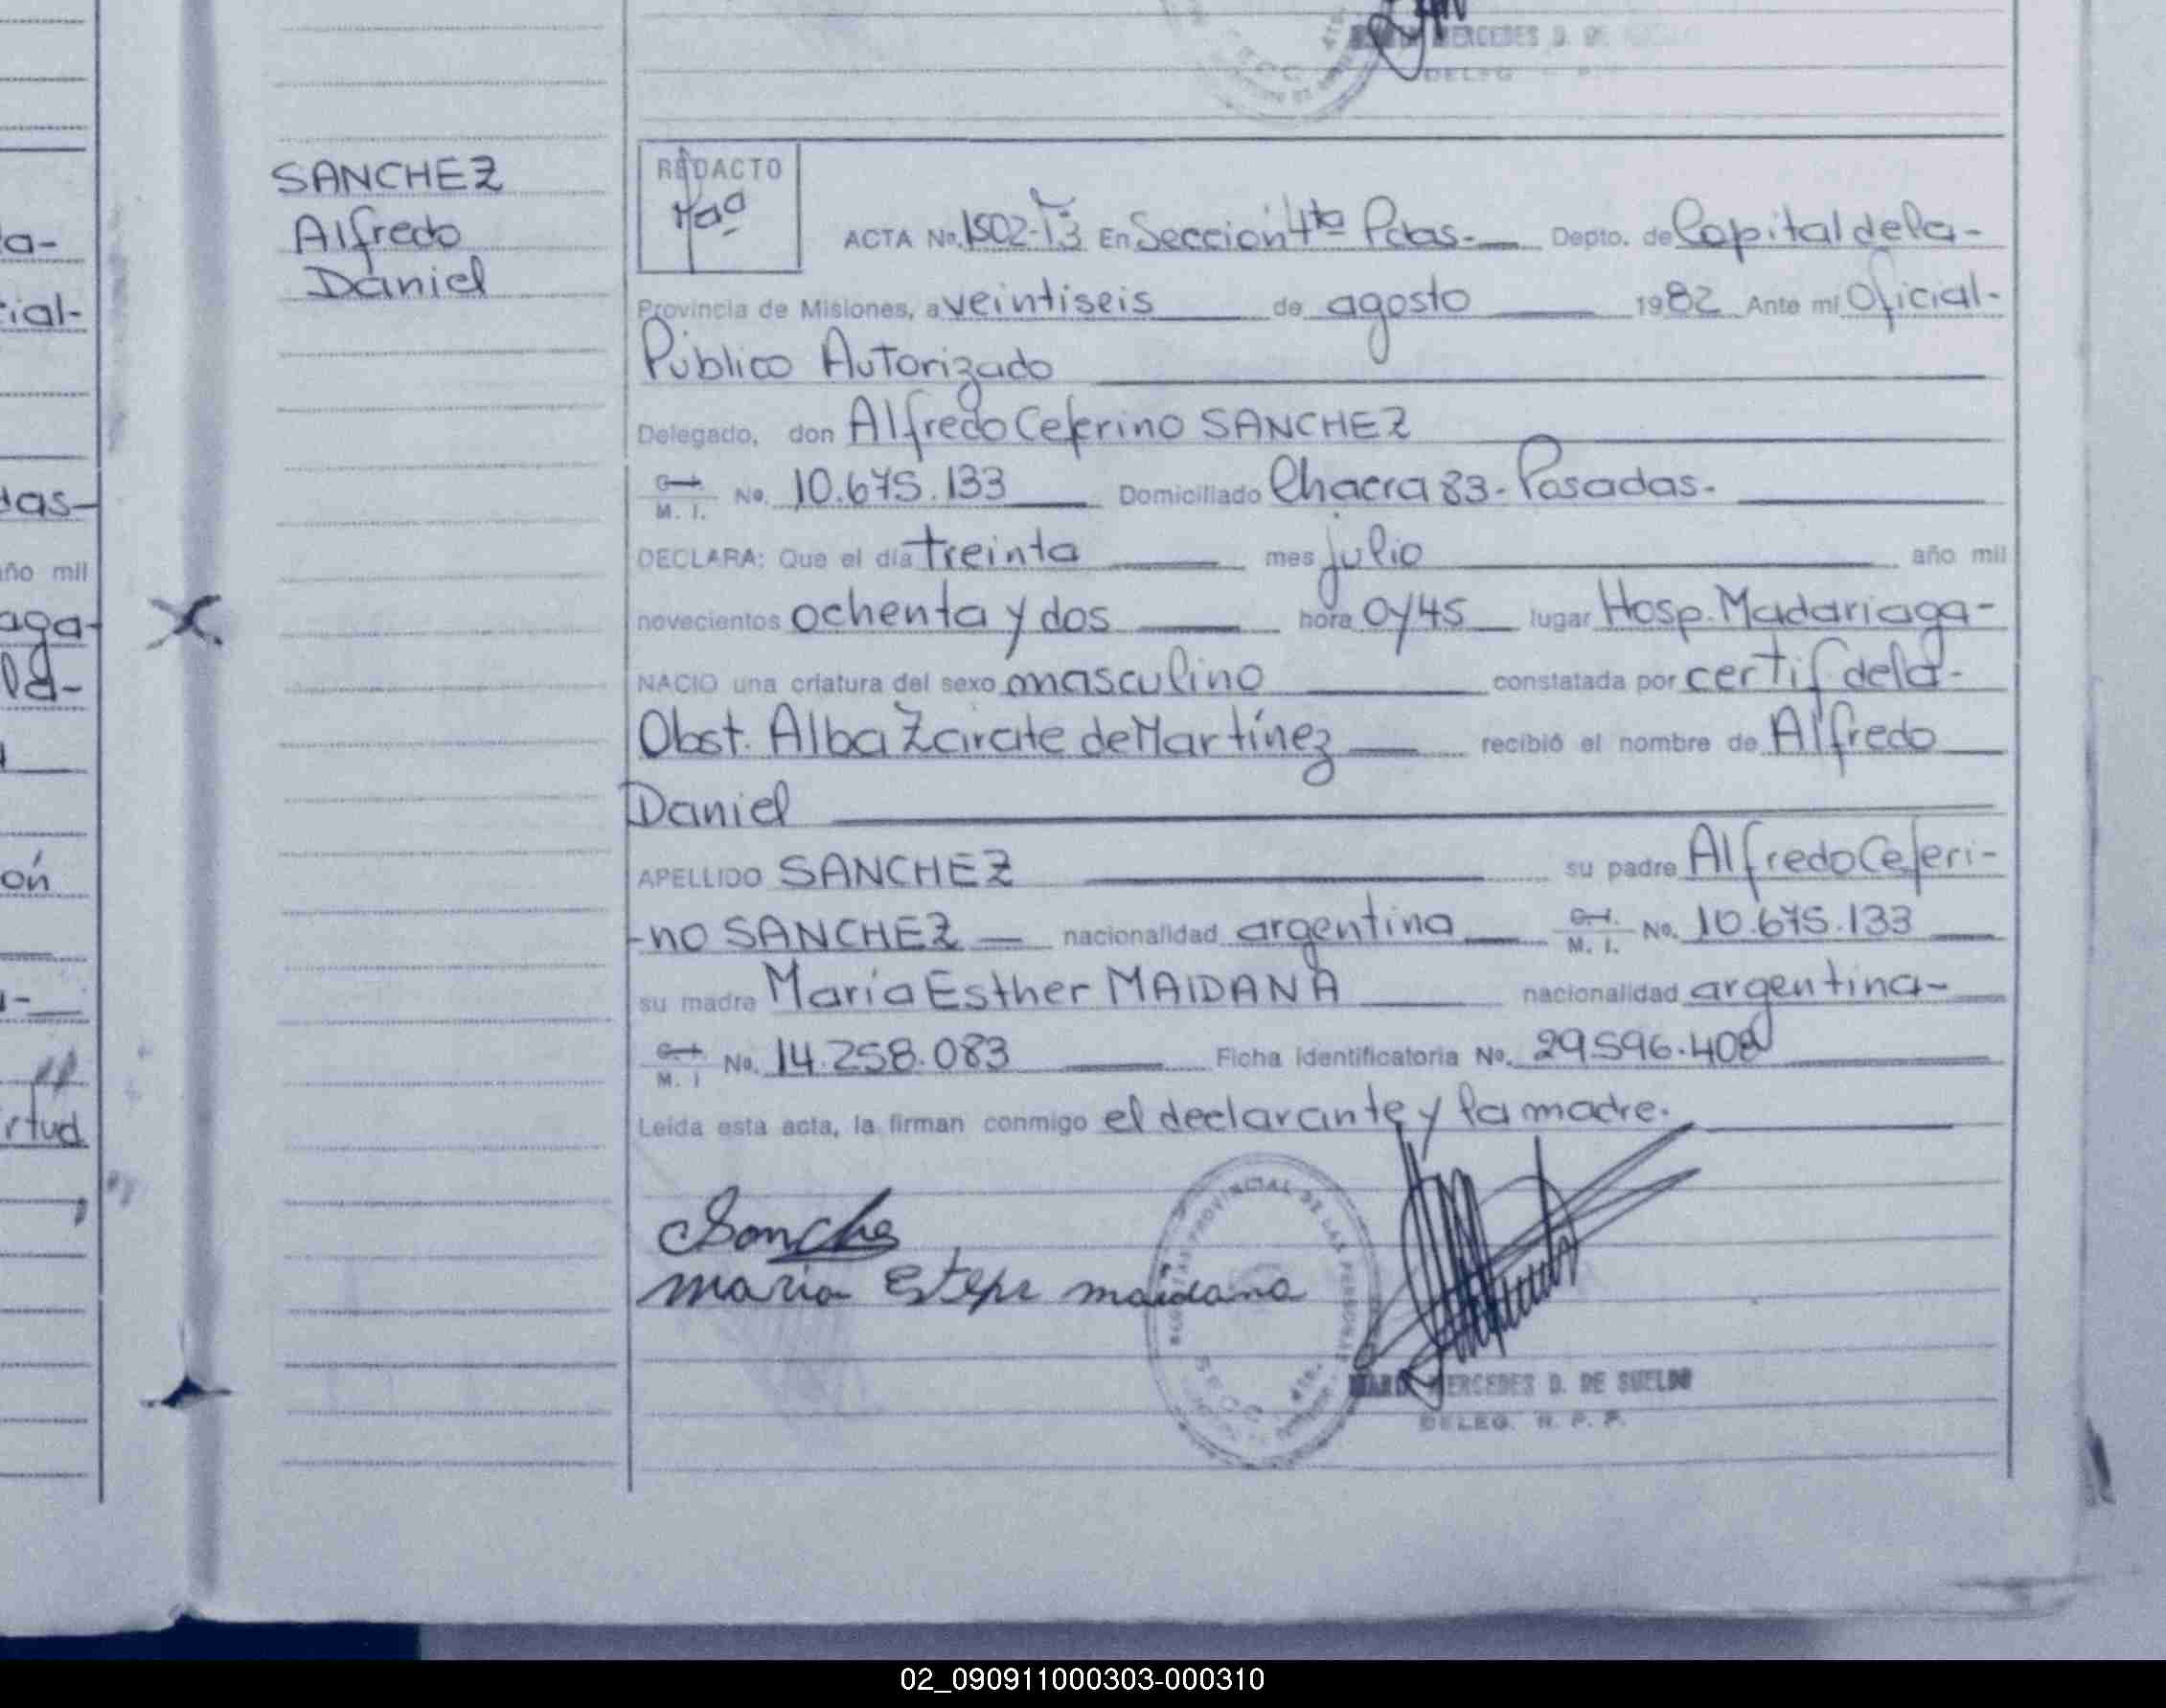 MERCEDES D. DE
DELEG
SANCHEZ
Alfredo
Daniel
REDACTO
ACTA No. 1502-T3 En Sección 4ta Pdas.- Depto. de Capital de la-
Provincia de Misiones, a veintiseis de agosto 1982 Ante mi Oficial-
Público Autorizado
Delegado, don Alfredo Ceferino SANCHEZ
C.I. M. I. No. 10.675.133 Domiciliado Chacra 83-Posadas.
DECLARA: Que el día treinta mes julio año mil
novecientos ochenta y dos hora 0y45 lugar Hosp. Madariaga-
NACIO una criatura del sexo masculino constatada por certif de la-
Obst. Alba Zárate de Martínez recibió el nombre de Alfredo
Daniel
APELLIDO SANCHEZ su padre Alfredo Ceferi-
-no SANCHEZ nacionalidad argentina C.I. M. I. No. 10.675.133
su madre María Esther MAIDANA nacionalidad argentina-
C.I. M. I No. 14.258.083 Ficha identificatoria No. 29.596.402
Leída esta acta, la firman conmigo el declarante y la madre.
maria Estepr maidana
PROVINCIAL DE LAS PERSONAS
MARIA MERCEDES D. DE SUELDO
DELEG. R. P. P.
a-
ial-
das-
año mil
aga-
la-
ón
rtud
02_090911000303-000310